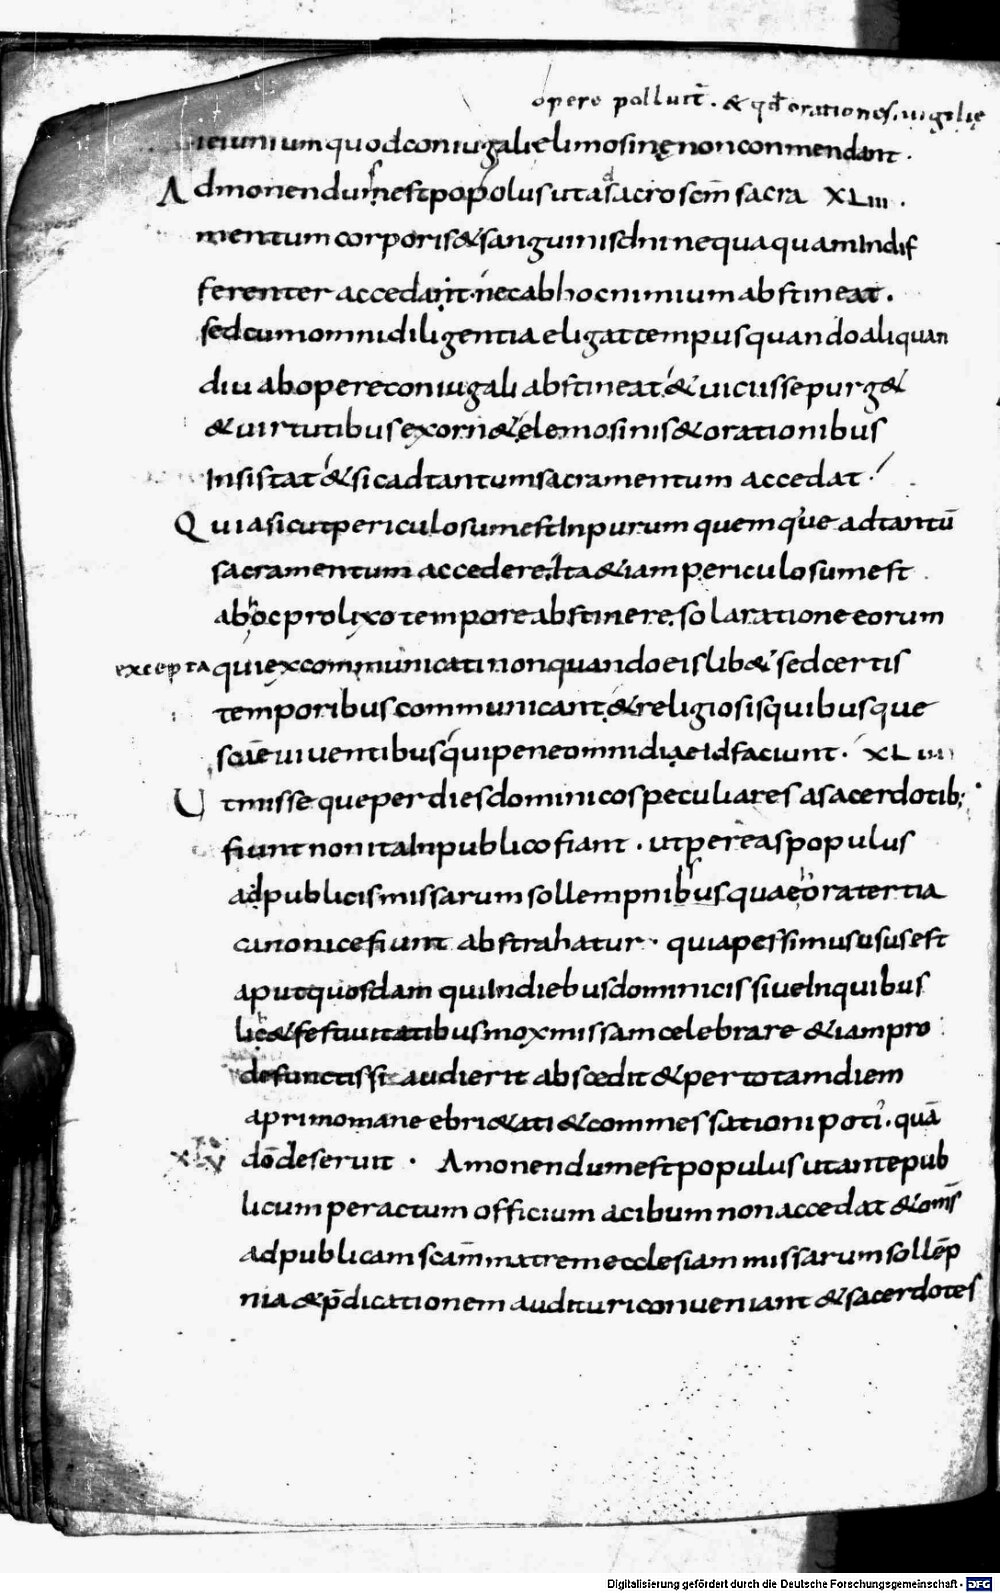 opere polluit̄. & qđ orationes. uigilię
ieiunium quod coniugali elimosinę non conmendant.
Admonendum est popolus ut ad sacro scm̄ sacra XLIII.
mentum corporis & sanguinis dn̄i nequaquam Indif
ferenter accedant. nec ab hoc nimium abstineat.
sed cum omni diligentia eligat tempus quando aliquan
diu ab opere coniugali abstineat & uicusse purg&
& uirtutibus exorn& elemosinis & orationibus
Insistat & sic ad tantum sacramentum accedat
Quia sicut periculosum est Inpurum quemque ad tantū
sacramentum accedere. Ita & iam periculosum est
ab hoc prolixo tempore abstinere. sola ratione eorum
excepta qui excommunicati non quando eis lib& sed certis
temporibus communicant. & religiosis quibusque
scāe uiuentibus qui pene omni die Id faciunt. XLIIII
Ut misse que per dies dominicos peculiares a sacerdotib;
fiunt non ita In publico fiant. ut per eas populus
ad publicis missarum sollempnibus quae hora tertia
canonice fiunt abstrahatur. quia pessimus usus est
aput quosdam qui In diebus dominicis siue In quibus
lib& festiuitatibus mox missam celebrare & iam pro
defunctis sit audierit abscedit & per totam diem
a primo mane ebri&ati & commessationi poti'. quā
XLV dō deseruit. Amonendum est populus ut ante pub
licum peractum officium ac ibum non accedat & om̄s
ad publicam scam̄ matrem ecclesiam missarum sollēp
nia & p̄dicationem audituri conueniant & sacerdotes
Digitalisierung gefördert durch die Deutsche Forschungsgemeinschaft - DFG